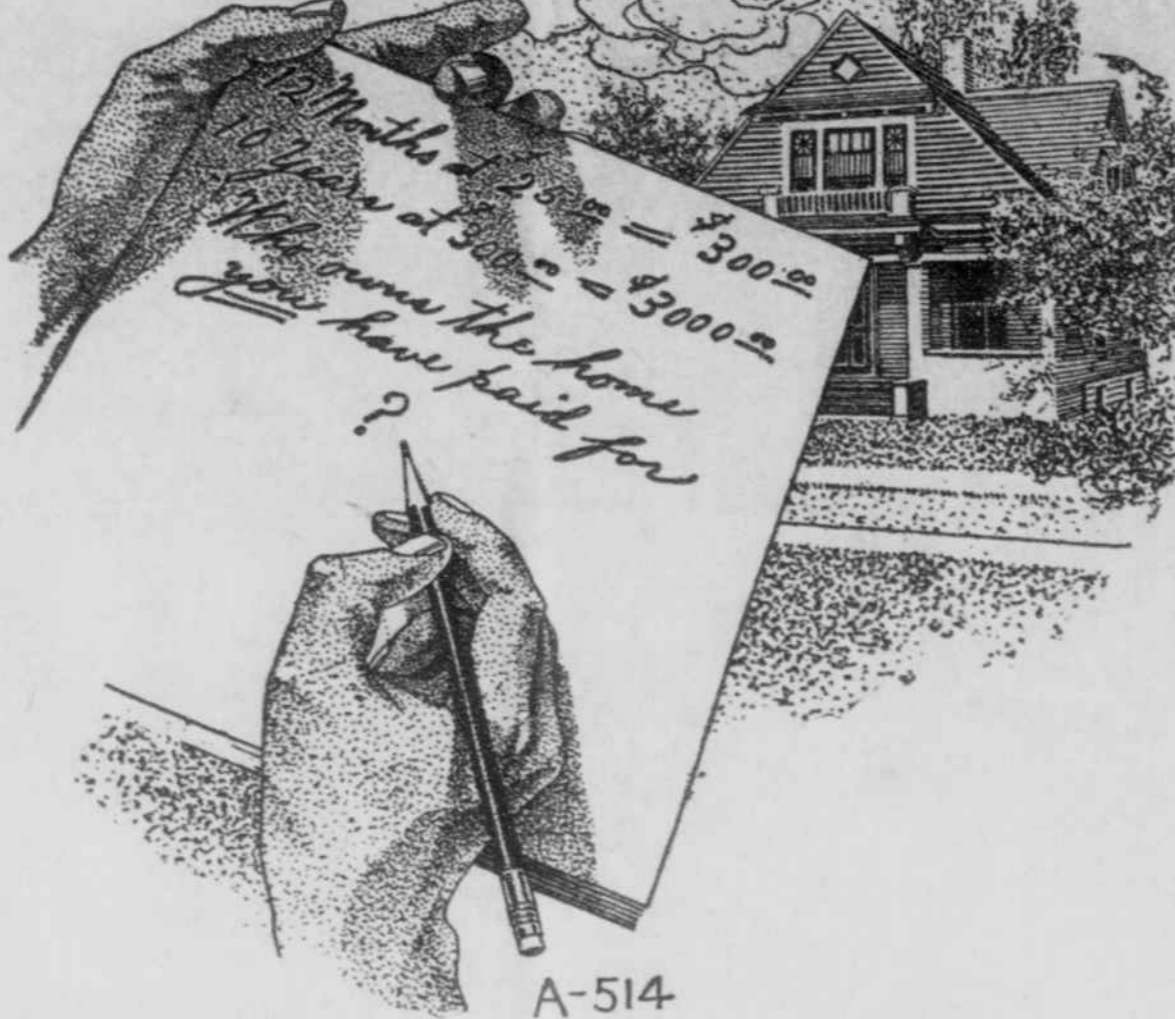 12 Months at 25.00 = $300.00
10 Years at 300.00 = $3000.00
Who owns the home
you have paid for
?
A-514